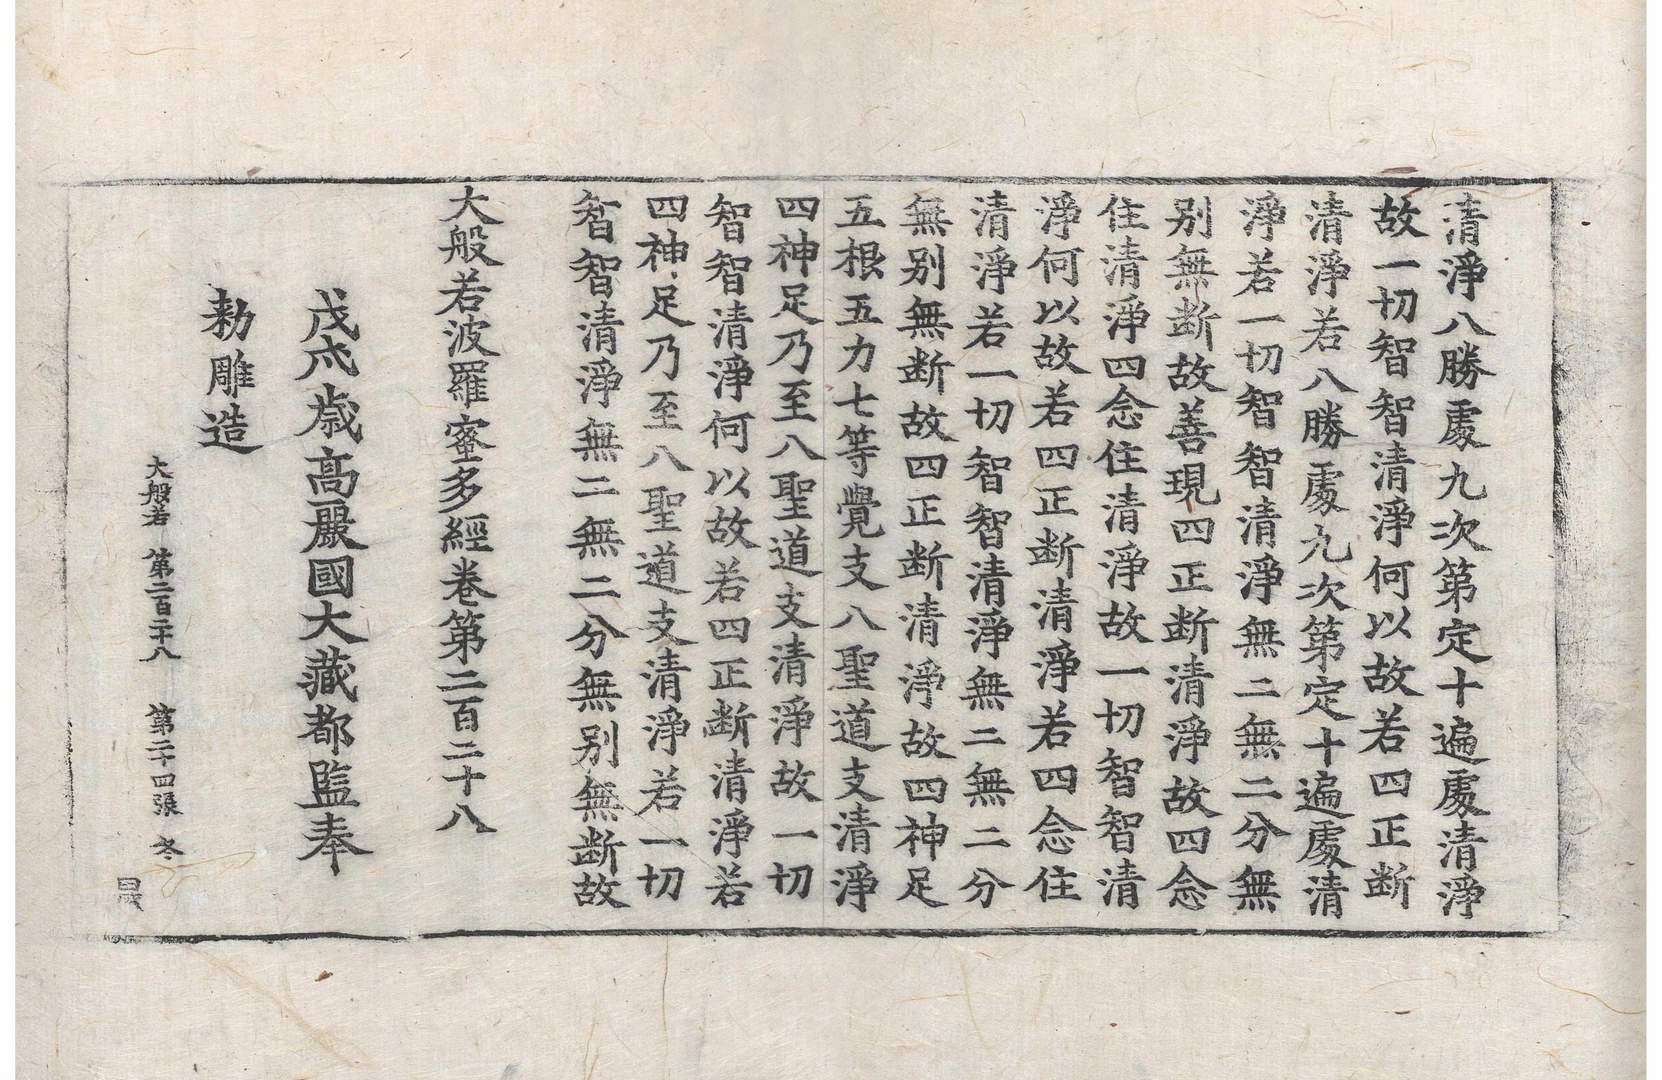 清淨八勝處九次第定十遍處清淨
故一切智智清淨何以故若四正断
清淨若八勝處九次第定十遍處清
淨若一切智智清淨無二無二分無
別無断故善現四正断清淨故四念
住清淨四念住清淨故一切智智清
淨何以故若四正断清淨若四念住
清淨若一切智智清淨無二無二分
無別無断故四正断清淨故四神足
五根五力七等覺支八聖道支清淨
四神足乃至八聖道支清淨故一切
智智清淨何以故若四正断清淨若
四神足乃至八聖道支清淨若一切
智智清淨無二無二分無別無断故
大般若波羅蜜多經卷第二百二十八
戊戌歲高麗國大藏都監奉
勅雕造
大般若 第二百二十八 第二十四張 冬